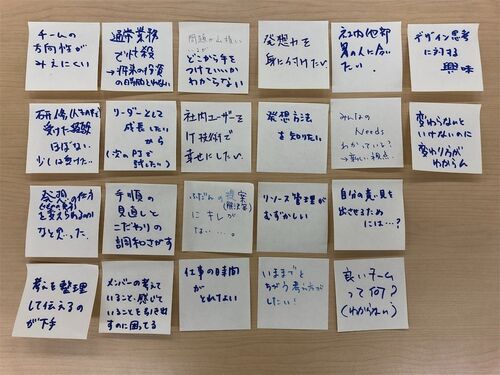 チームの
方向性が
みえにくい
通常業務
で忙殺
→将来の投資
の時間とれない
どこから手を
つけていいか
わからない
発想力を
身に付けたい
社内他部
署の人に会い
たい。
デザイン思考
に対する
興味
研修
受けた経験
ほぼない
少しは受けたい…
リーダーとして
成長したい
から
社内ユーザーを
IT技術で
幸せにしたい
発想方法
を知りたい
みんなの
Needs
わかっている?
→新しい視点
変わらないと
いけないのに
変わり方が
わからん
発想の仕方
を変えられるのか
なと思った
手順の
見直しと
こだわりの
調和さがす
ふだんの提案
(解決策)
にキレが
ない……。
リソース管理が
むずかしい
自分の意見を
出させるため
には…?
考えを整理
して伝えるの
が下手
メンバーの考えて
いること、感じて
いることを引き出
すのに困ってる
仕事の時間
が
とれない
いままでと
ちがう考え方が
したい!
良いチーム
って何?
(わからない)